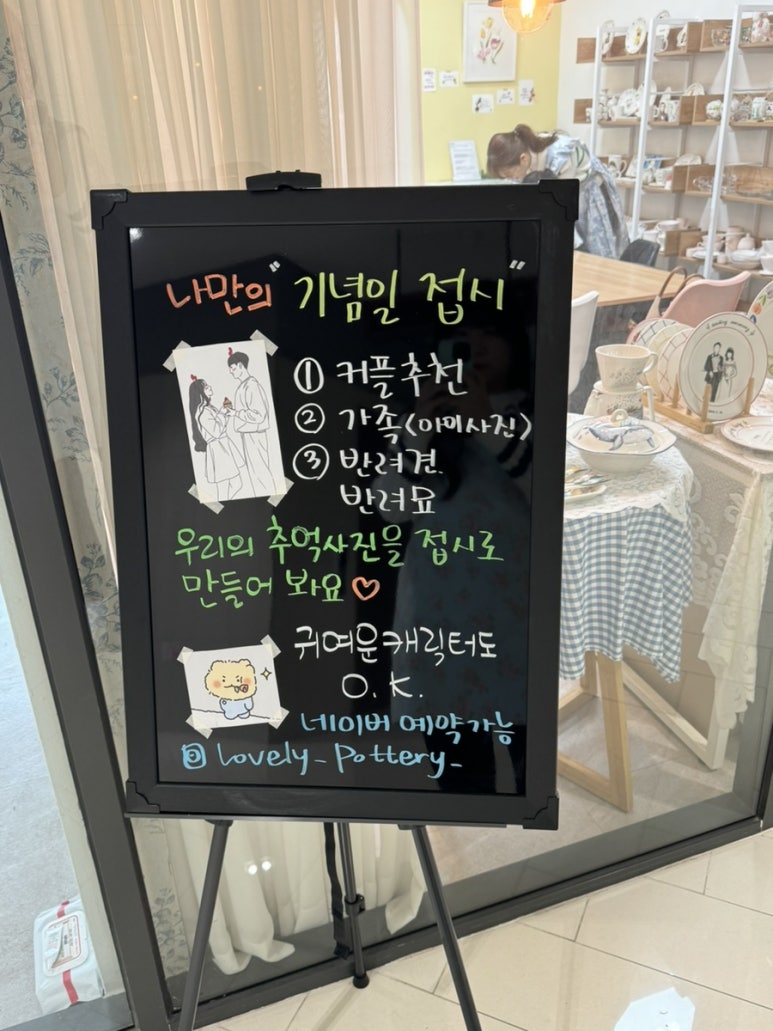 나만의 "기념일 접시"
① 커플추천
② 가족<아미사진>
③ 반려견.
반려묘
우리의 추억사진을 접시로
만들어 봐요♡
귀여운캐릭터도
O.K.
네이버 예약가능
lovely_pottery_